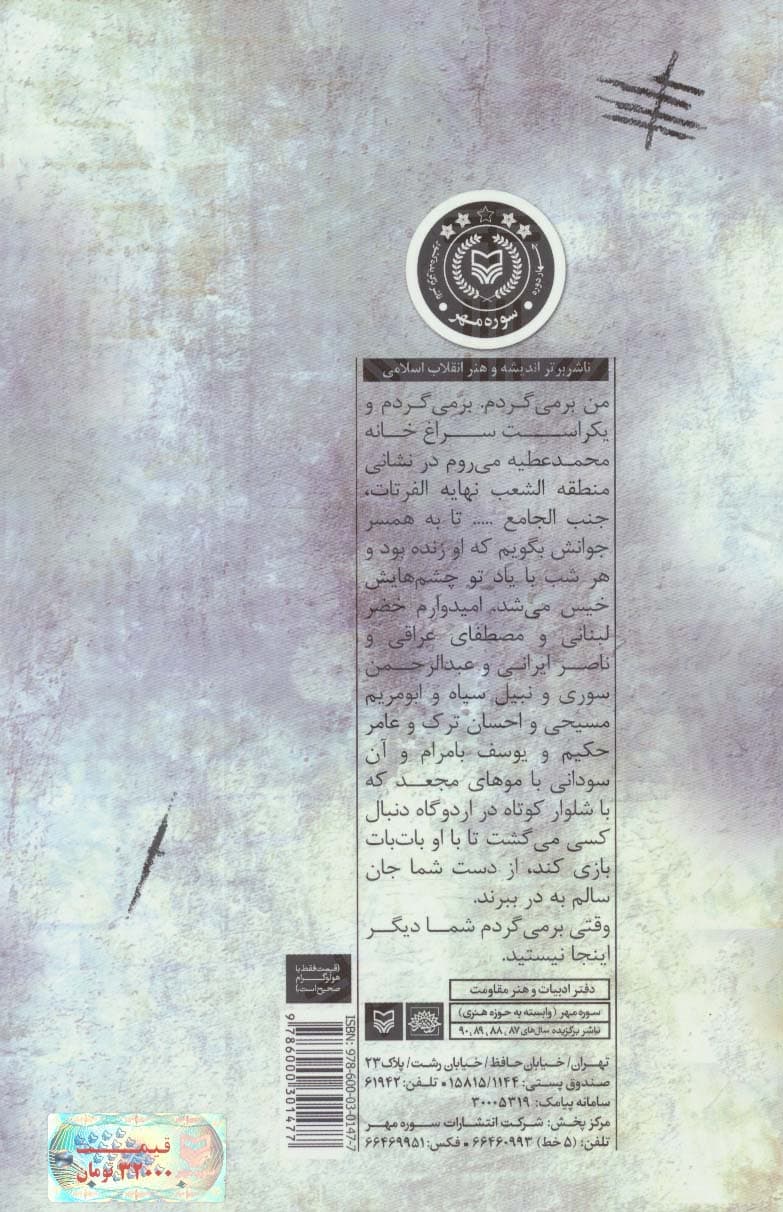 سوره مهر
ناشر برتر اندیشه و هنر انقلاب اسلامی
من برمی‌گردم. برمی‌گردم و
یکراست سراغ خانه
محمدعطیه می‌روم در نشانی
منطقه الشعب نهایه الفرتات،
جنب الجامع ..... تا به همسر
جوانش بگویم که او زنده بود و
هر شب با یاد تو چشم‌هایش
خیس می‌شد. امیدوارم خضر
لبنانی و مصطفای عراقی و
ناصر ایرانی و عبدالرحمن
سوری و نبیل سیاه و ابومریم
مسیحی و احسان ترک و عامر
حکیم و یوسف بامرام و آن
سودانی با موهای مجعد که
با شلوار کوتاه در اردوگاه دنبال
کسی می‌گشت تا با او بات‌بات
بازی کند، از دست شما جان
سالم به در ببرند.
وقتی برمی‌گردم شما دیگر
اینجا نیستید.
دفتر ادبیات و هنر مقاومت
سوره مهر (وابسته به حوزه هنری)
ناشر برگزیده سال‌های ۸۷، ۸۸، ۸۹، ۹۰
تهران/ خیابان حافظ/ خیابان رشت/ پلاک ۲۳
صندوق پستی: ۱۵۸۱۵/۱۱۴۴ • تلفن: ۶۱۹۴۲
سامانه پیامک: ۳۰۰۰۵۳۱۹
مرکز پخش: شرکت انتشارات سوره مهر
تلفن: (۵ خط) ۶۶۴۶۰۹۹۳ • فکس: ۶۶۴۶۹۹۵۱
(قیمت فقط با
هولوگرام
صحیح است)
ISBN: 978-600-03-0147-7
9786000301477
قیمت
۳۲۰۰۰ تومان